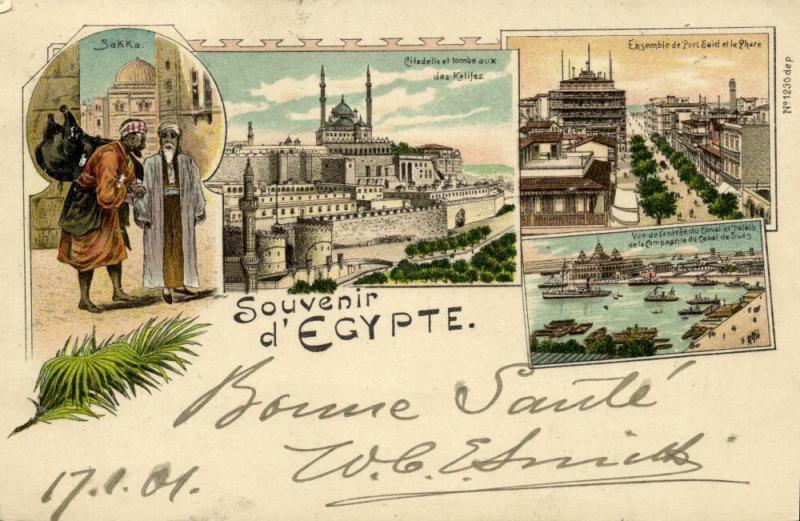 Sakka.
Citadelle et tombeaux
des Kalifes.
Ensemble de Port Said et le Phare
Nº 1230 dep
Vue de l'entrée du Canal et Palais
de la Compagnie du Canal de Suès
Souvenir
d'EGYPTE.
Bonne Santé
W. C. E. Smith
17.1.01.